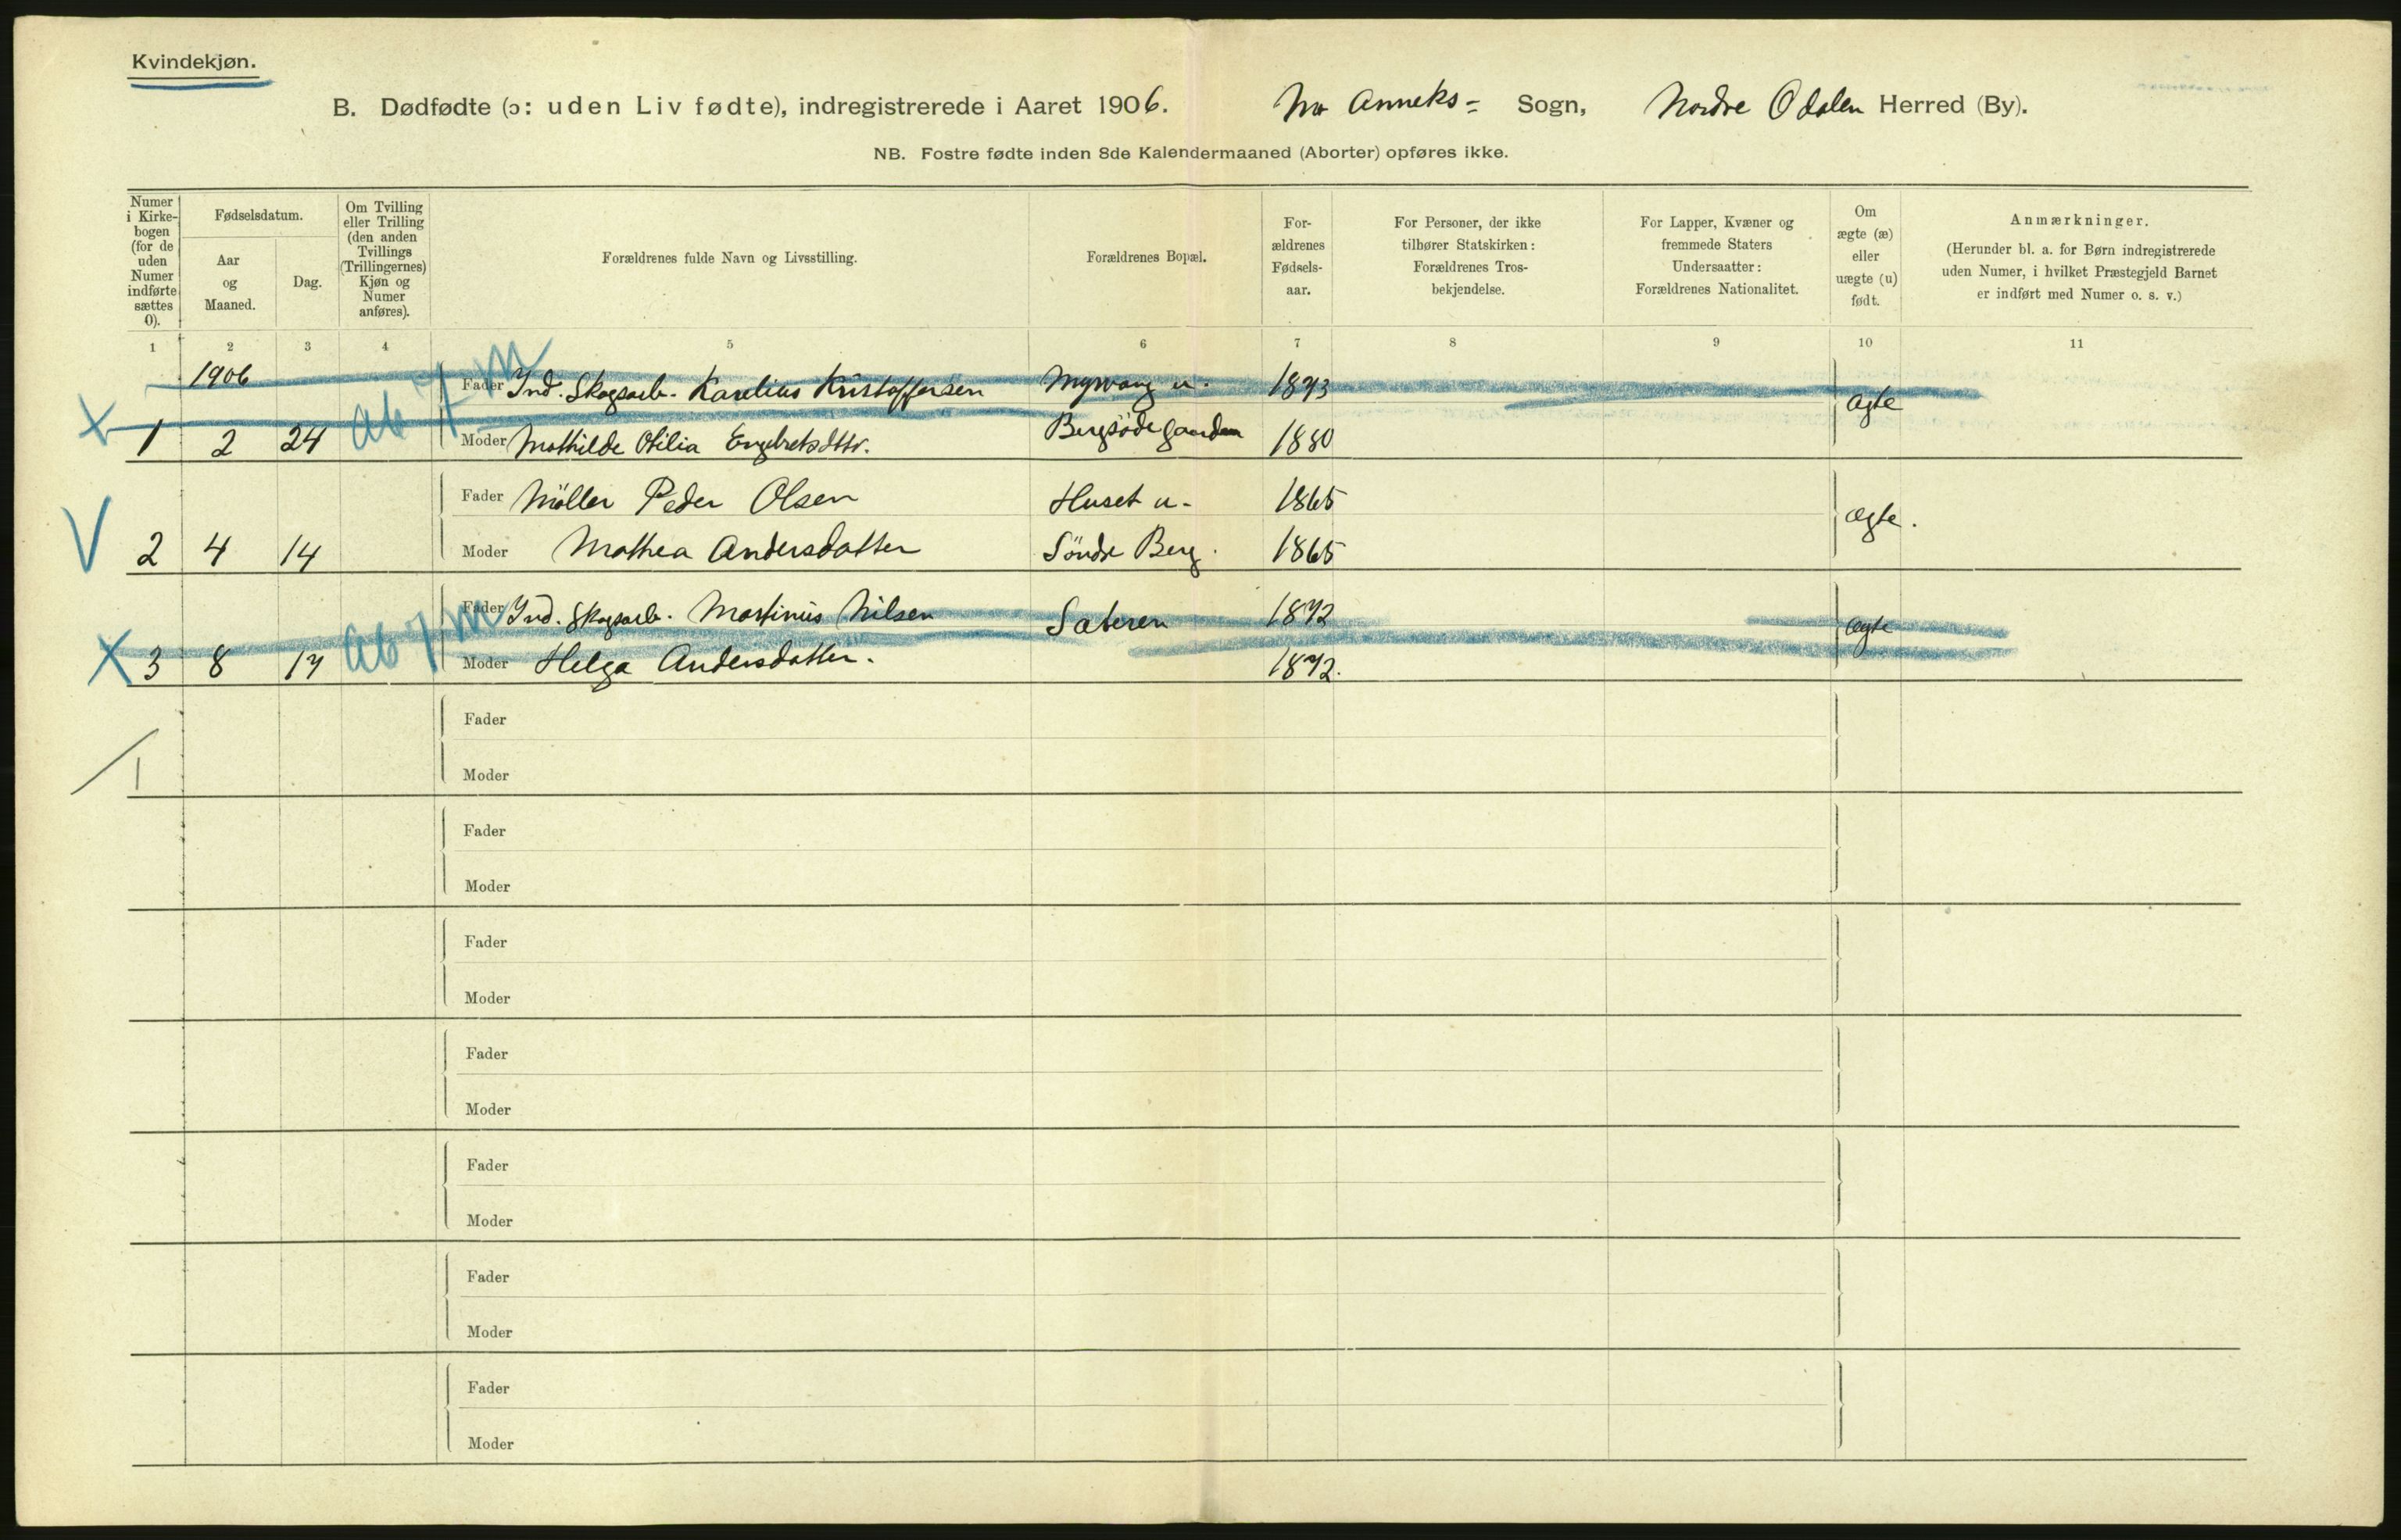 Kvindekjøn.
B. Dødfødte (ɔ: uden Liv fødte), indregistrerede i Aaret 1906. Mo Anneks- Sogn, Nordre Odalen Herred (By).
NB. Fostre fødte inden 8de Kalendermaaned (Aborter) opføres ikke.
Numer i Kirkebogen (for de uden Numer indførte sættes 0).
Fødselsdatum.
Aar og Maaned.
Dag.
Om Tvilling eller Trilling (den anden Tvillings (Trillingernes) Kjøn og Numer anføres).
Forældrenes fulde Navn og Livsstilling.
Forældrenes Bopæl.
Forældrenes Fødselsaar.
For Personer, der ikke tilhører Statskirken: Forældrenes Trosbekjendelse.
For Lapper, Kvæner og fremmede Staters Undersaatter: Forældrenes Nationalitet.
Om ægte (æ) eller uægte (u) født.
Anmærkninger.
(Herunder bl. a. for Børn indregistrerede uden Numer, i hvilket Præstegjeld Barnet er indført med Numer o. s. v.)
1 2 3 4 5 6 7 8 9 10 11
1906 Fader Ind. Skogsarb. Karelius Kristoffersen Myrvang u. 1873 ægte
X 1 2 24 Ab 7 m Moder Mathilde Otilia Engebretsdttr. 1880
Fader Møller Peder Olsen Huset u- 1865 ægte.
V 2 4 14 Moder Mathea Andersdatter Søndr Berg. 1865
Fader Ind. Skogsarb. Martinius Nilsen Sæteren 1872 ægte
X 3 8 17 Ab 7 m Moder Helga Andersdatter. 1872.
Fader
/ 1 Moder
Fader
Moder
Fader
Moder
Fader
Moder
Fader
Moder
Fader
Moder
Fader
Moder